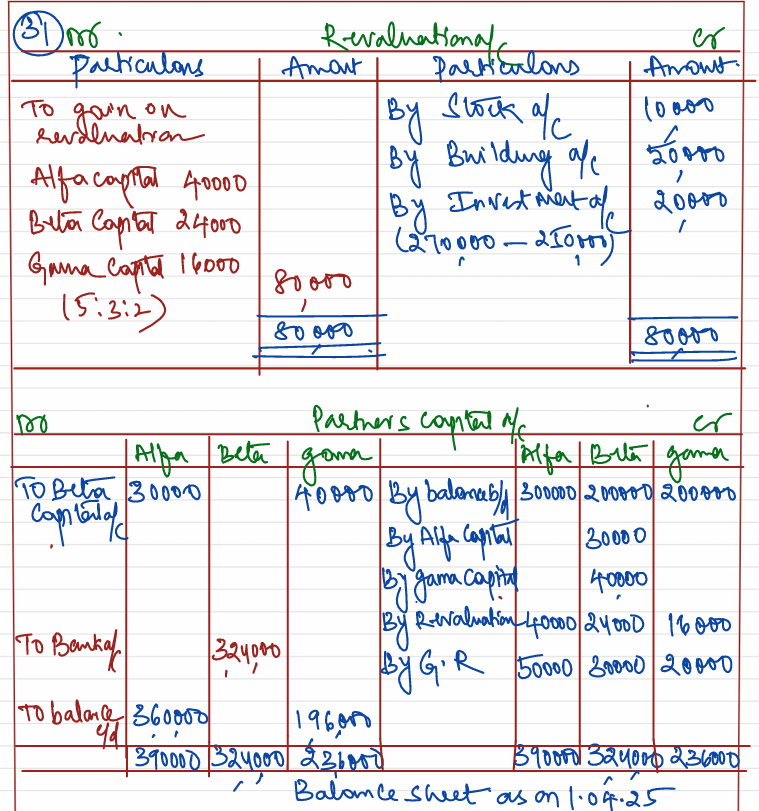 31 Dr. Revaluation a/c Cr
Particulars Amount Particulars Amount
To gain on revaluation By Stock a/c 10000
Alfa capital 40000 By Building a/c 50000
Beta Capital 24000 By Investment a/c 20000
Gama Capital 16000 (270,000 – 250,000)
(5:3:2) 80,000
80,000 80,000
Dr Partners capital a/c Cr
Alfa Beta gama Alfa Beta gama
To Beta Capital a/c 30000 40000 By balance b/d 300000 200000 200000
By Alfa Capital 30000
By gama Capital 40000
By Revaluation 40000 24000 16000
To Bank a/c 324,000 By G.R 50000 30000 20000
To balance c/d 360,000 196,000
390000 324,000 236000 390000 324000 236000
Balance sheet as on 1.04.25